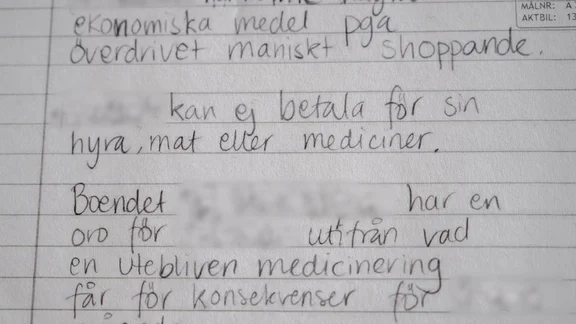 ekonomiska medel pga
överdrivet maniskt shoppande.
MÅLNR: A
AKTBIL: 13
kan ej betala för sin
hyra, mat eller mediciner.
Boendet har en
oro för utifrån vad
en utebliven medicinering
får för konsekvenser för